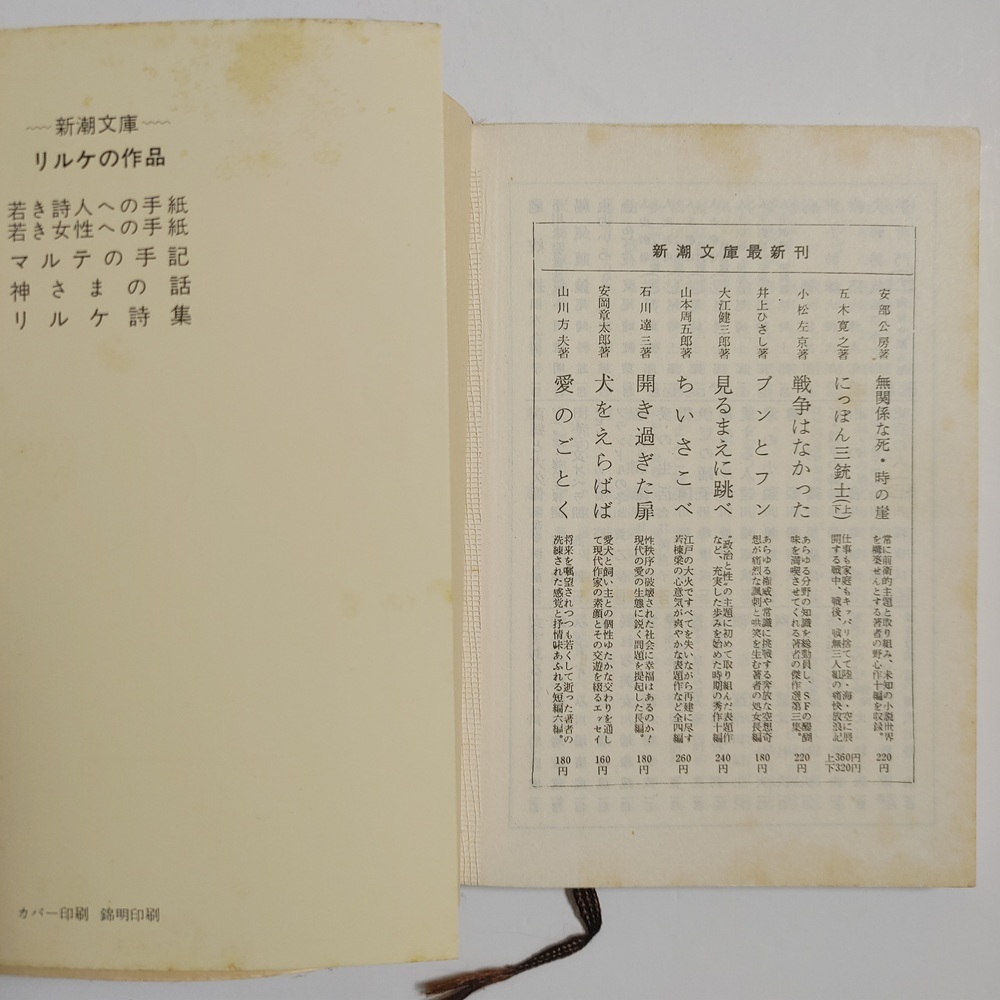 新潮文庫
リルケの作品
若き詩人への手紙
若き女性への手紙
マルテの手記
神さまの話
リルケ詩集
カバー印刷 錦明印刷
新潮文庫最新刊
安部公房著
無関係な死・時の崖
常に前衛的主題と取り組み、未知の小説世界
を構築せんとする著者の野心作十編を収録。
220円
五木寛之著
にっぽん三銃士(上)(下)
仕事も家庭もキッパリ捨てて陸・海・空に展
開する戦中、戦後、戦無三人組の痛快放浪記
上360円
下320円
小松左京著
戦争はなかった
あらゆる分野の知識を総動員し、SFの醍醐
味を満喫させてくれる著者の傑作選第三集。
220円
井上ひさし著
ブンとフン
あらゆる権威や常識に挑戦する奔放な空想奇
想が痛烈な諷刺と哄笑を生む著者の処女長編
180円
大江健三郎著
見るまえに跳べ
“政治と性”の主題に初めて取り組んだ表題作
など、充実した歩みを始めた時期の秀作十編
240円
山本周五郎著
ちいさこべ
江戸の大火ですべてを失いながら再建に尽す
若棟梁の心意気が爽やかな表題作など全四編
260円
石川達三著
開き過ぎた扉
性秩序の破壊された社会に幸福はあるのか!
現代の愛の生態に鋭く問題を提起した長編。
180円
安岡章太郎著
犬をえらばば
愛犬と飼い主との個性ゆたかな交わりを通し
て現代作家の素顔とその交遊を綴るエッセイ
160円
山川方夫著
愛のごとく
将来を嘱望されつつも若くして逝った著者の
洗練された感覚と抒情味あふれる短編六編。
180円